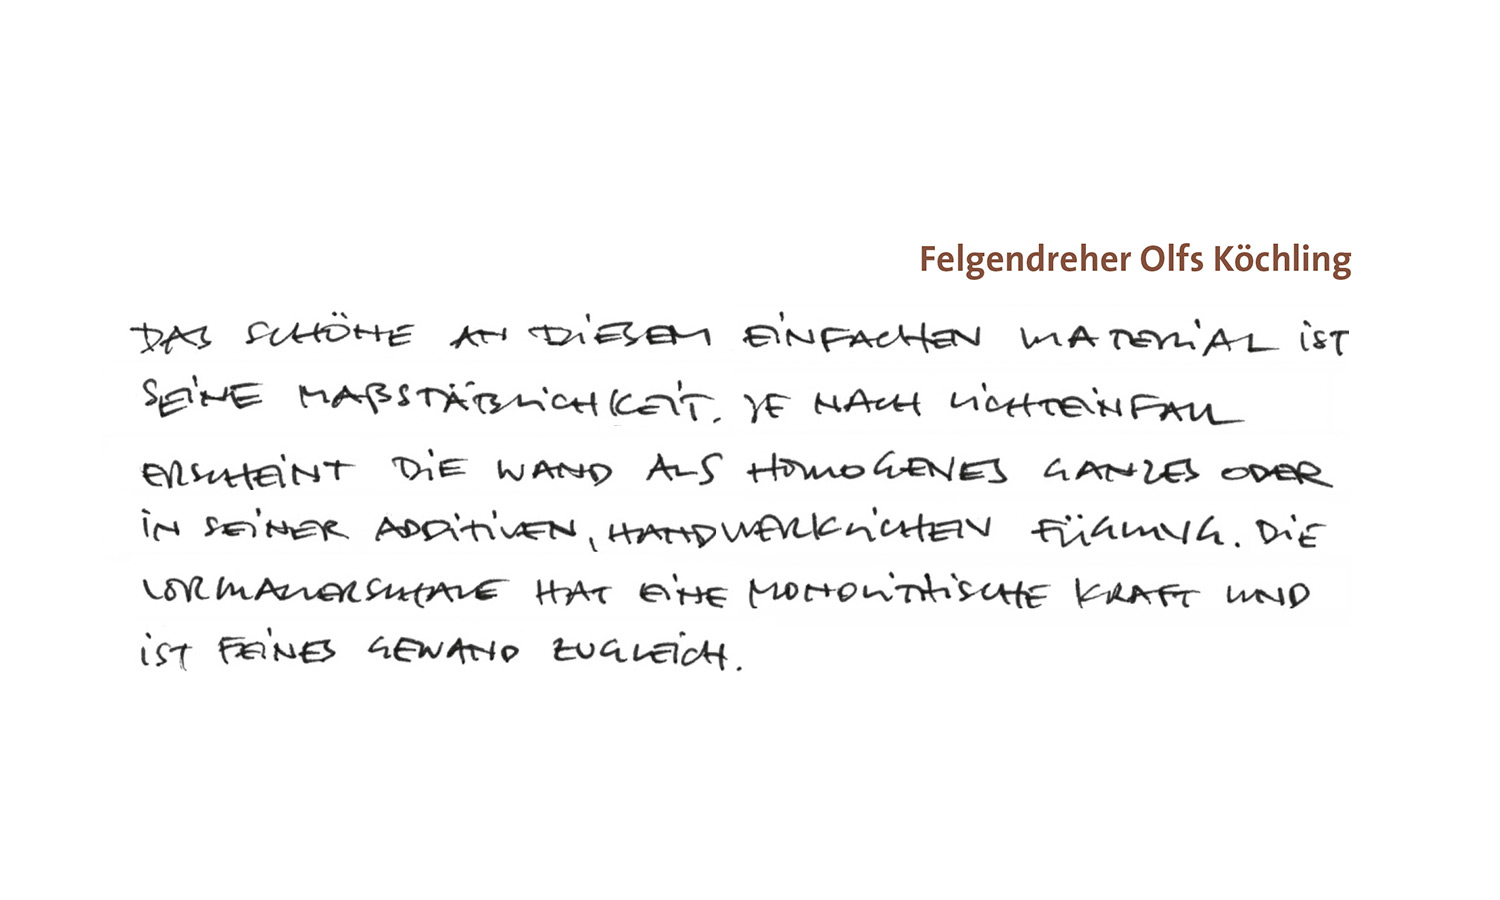 Felgendreher Olfs Köchling
DAS SCHÖNE AN DIESEM EINFACHEN MATERIAL IST
SEINE MAßSTÄBLICHKEIT. JE NACH LICHTEINFALL
ERSCHEINT DIE WAND ALS HOMOGENES GANZES ODER
IN SEINER ADDITIVEN, HANDWERKLICHEN FÜGUNG. DIE
VORMAUERSCHALE HAT EINE MONOLITHISCHE KRAFT UND
IST FEINES GEWAND ZUGLEICH.